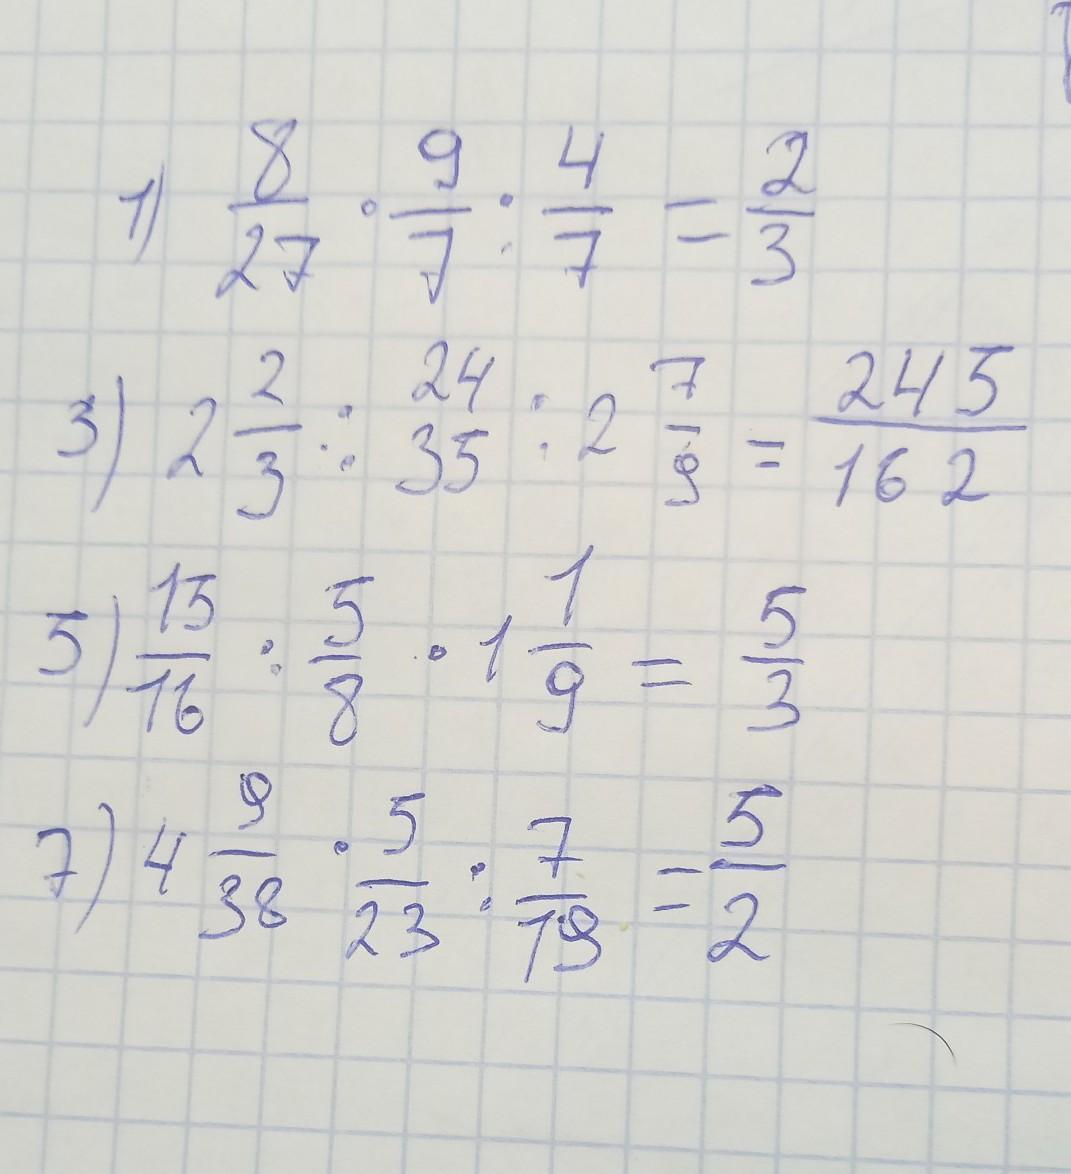 1) 8/27 · 9/7 : 4/7 = 2/3
3) 2 2/3 : 24 35 : 2 7/9 = 245/162
5) 15/16 : 5/8 · 1 1/9 = 5/3
7) 4 9/38 · 5/23 : 7/19 = 5/2